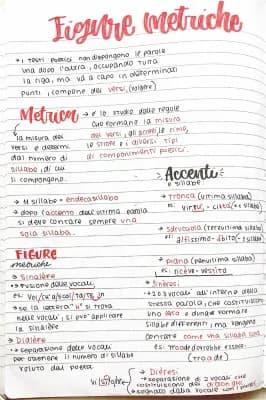 Figure metriche
• i testi poetici non dispongono le parole
una dopo l'altra, occupando tutta
la riga, ma va a capo in determinati
punti, i compone dei versi, (righe)
Metrica → è lo studio delle regole
che formano la misura
la misura dei
dei versi, gli accenti, le rime,
versi e determi
le strofe e i diversi tipi
dal numero di
di componimenti poetici.
sillabe, di cui
si compongono.
Accenti
e sillabe
→ 11 sillabe = endecasillabo
→ dopo l'accento dell'ultima parola
si deve contare sempre una
sola sillaba.
→ tronca (ultima sillaba)
es: virtù,
→ sdrucciola (terzultima sillaba)
es: altissimo
→ piana (penultima sillaba)
es: riceve - vestito
FIGURE
metriche
→ Sinalefe
• Fusione delle vocali
• se la lettera "h" si trova
nelle vocali, si può applicare
la sinalefe
→ Sineresi
• 2 o 3 vocali all'interno della
stessa parola, che costituiscono
due sillabe
sillabe differenti, ma vengono
contate come una sillaba sola
es: dovrebbe essere
→ Dialefe
• separazione delle vocali
per ottenere il numero di sillabe
voluto dal poeta
→ Dieresi
• separazione di 2 vocale che
costituiscono dei dittonghi
• segnato dalla vocale con i punti